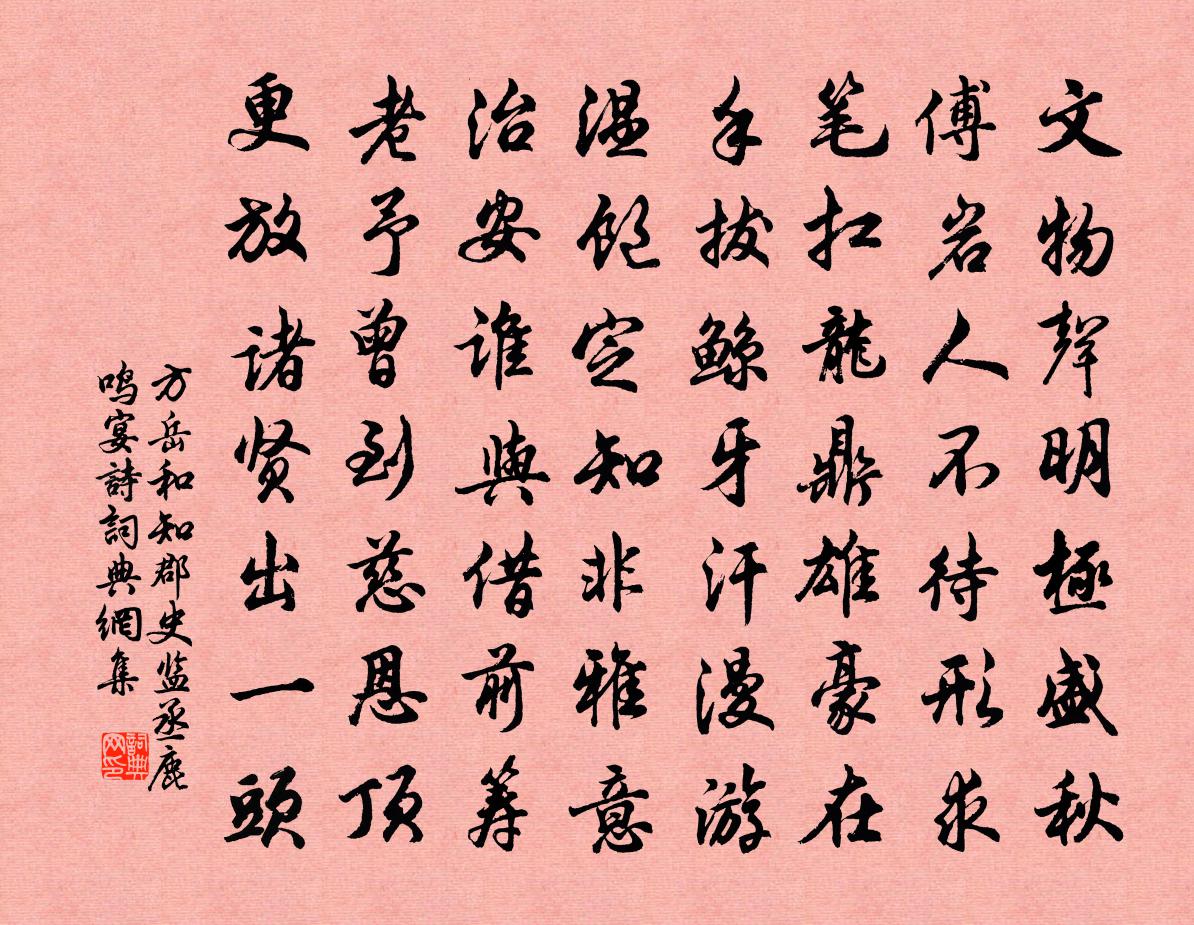 文物聲明極盛秋
傅岩人不待形求
笔扛龍鼎雄豪在
手拔鲸牙汗漫游
温飽定知非雅意
治安谁與借前筹
老予曾到慈恩顶
更放诸贤出一頭
方岳和知郡史监丞鹿
鸣宴詩詞典網集
詞典网印